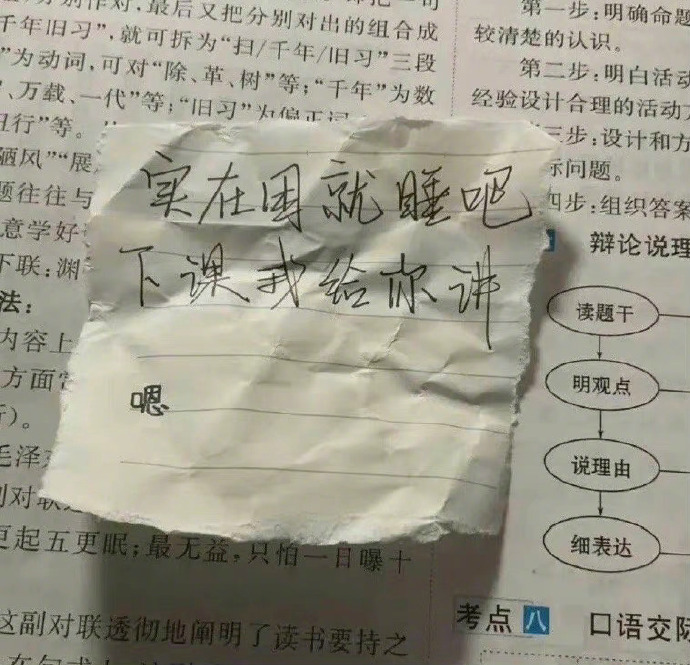 分别作对,最后又把分别对出的组合成
千年旧习”,就可拆为“扫/千年/旧习”三段
”为动词,可对“除、革、树”等;“千年”为数
、万载、一代”等;“旧习”为偏正词
丑行”等。
陋风”“展
题往往与
意学好
下联:渊
法:
内容上
方面
)。
毛泽
对联
更起五更眠;最无益,只怕一日曝十
这副对联透彻地阐明了读书要持之
实在困就睡吧
下课我给你讲
嗯
第一步:明确命题
较清楚的认识。
第二步:明白活动
经验设计合理的活动
三步:设计和方
际问题。
四步:组织答案
辩论说理
读题干
明观点
说理由
细表达
考点 八 口语交际